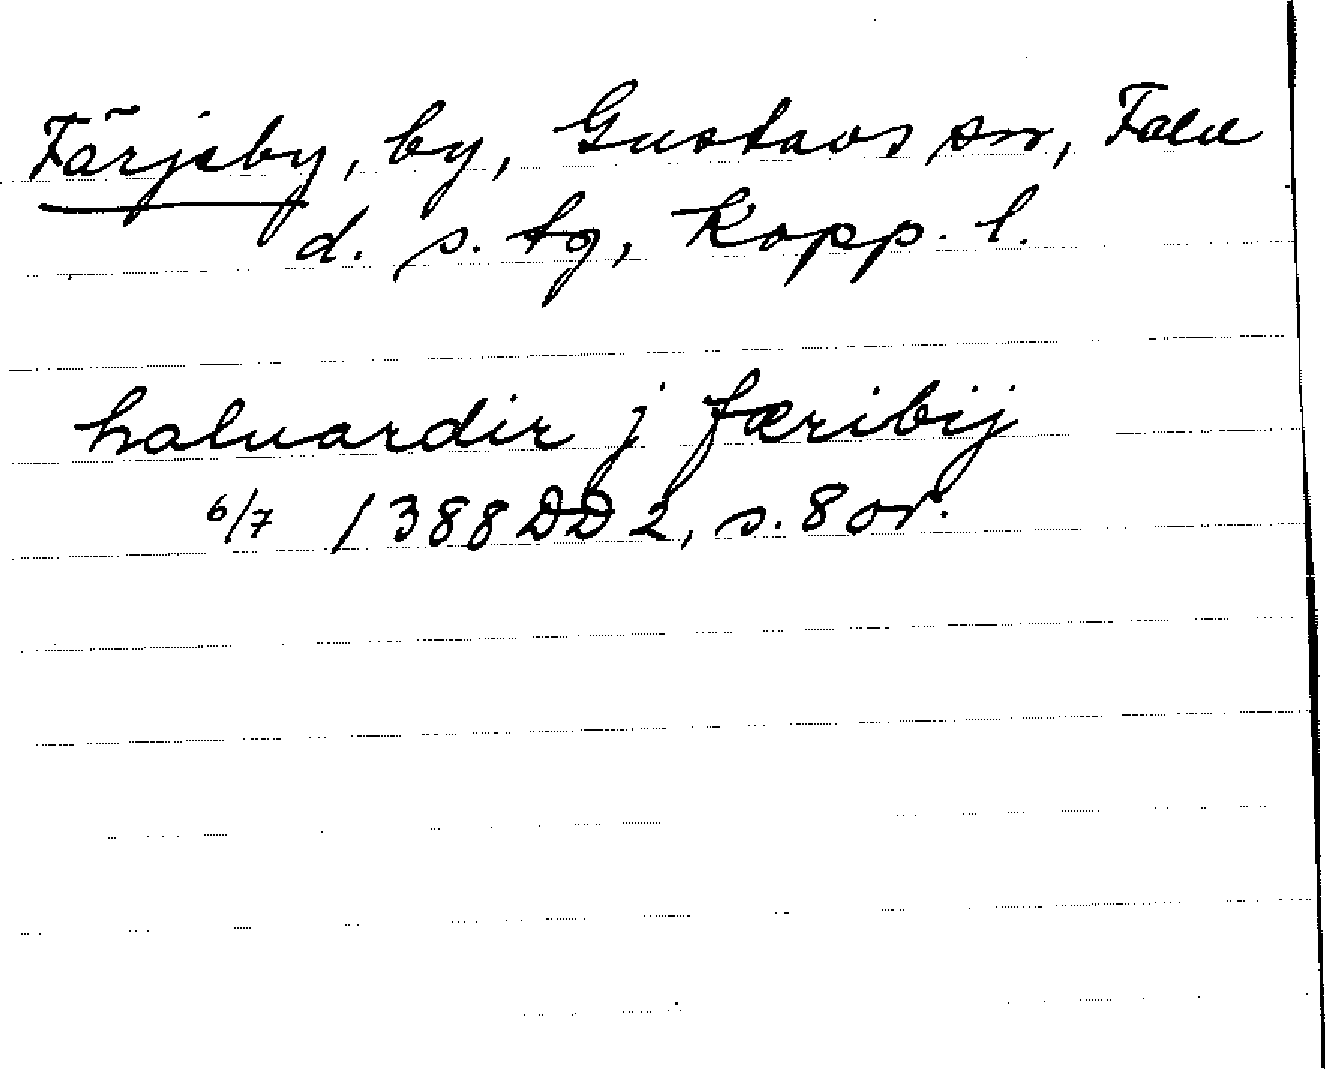 Färjsby, by, Gustavs sn, Falu
d. s. tg, Kopp. l.
haluardir j færibij
6/7 1388 DD 2, s. 8 or.